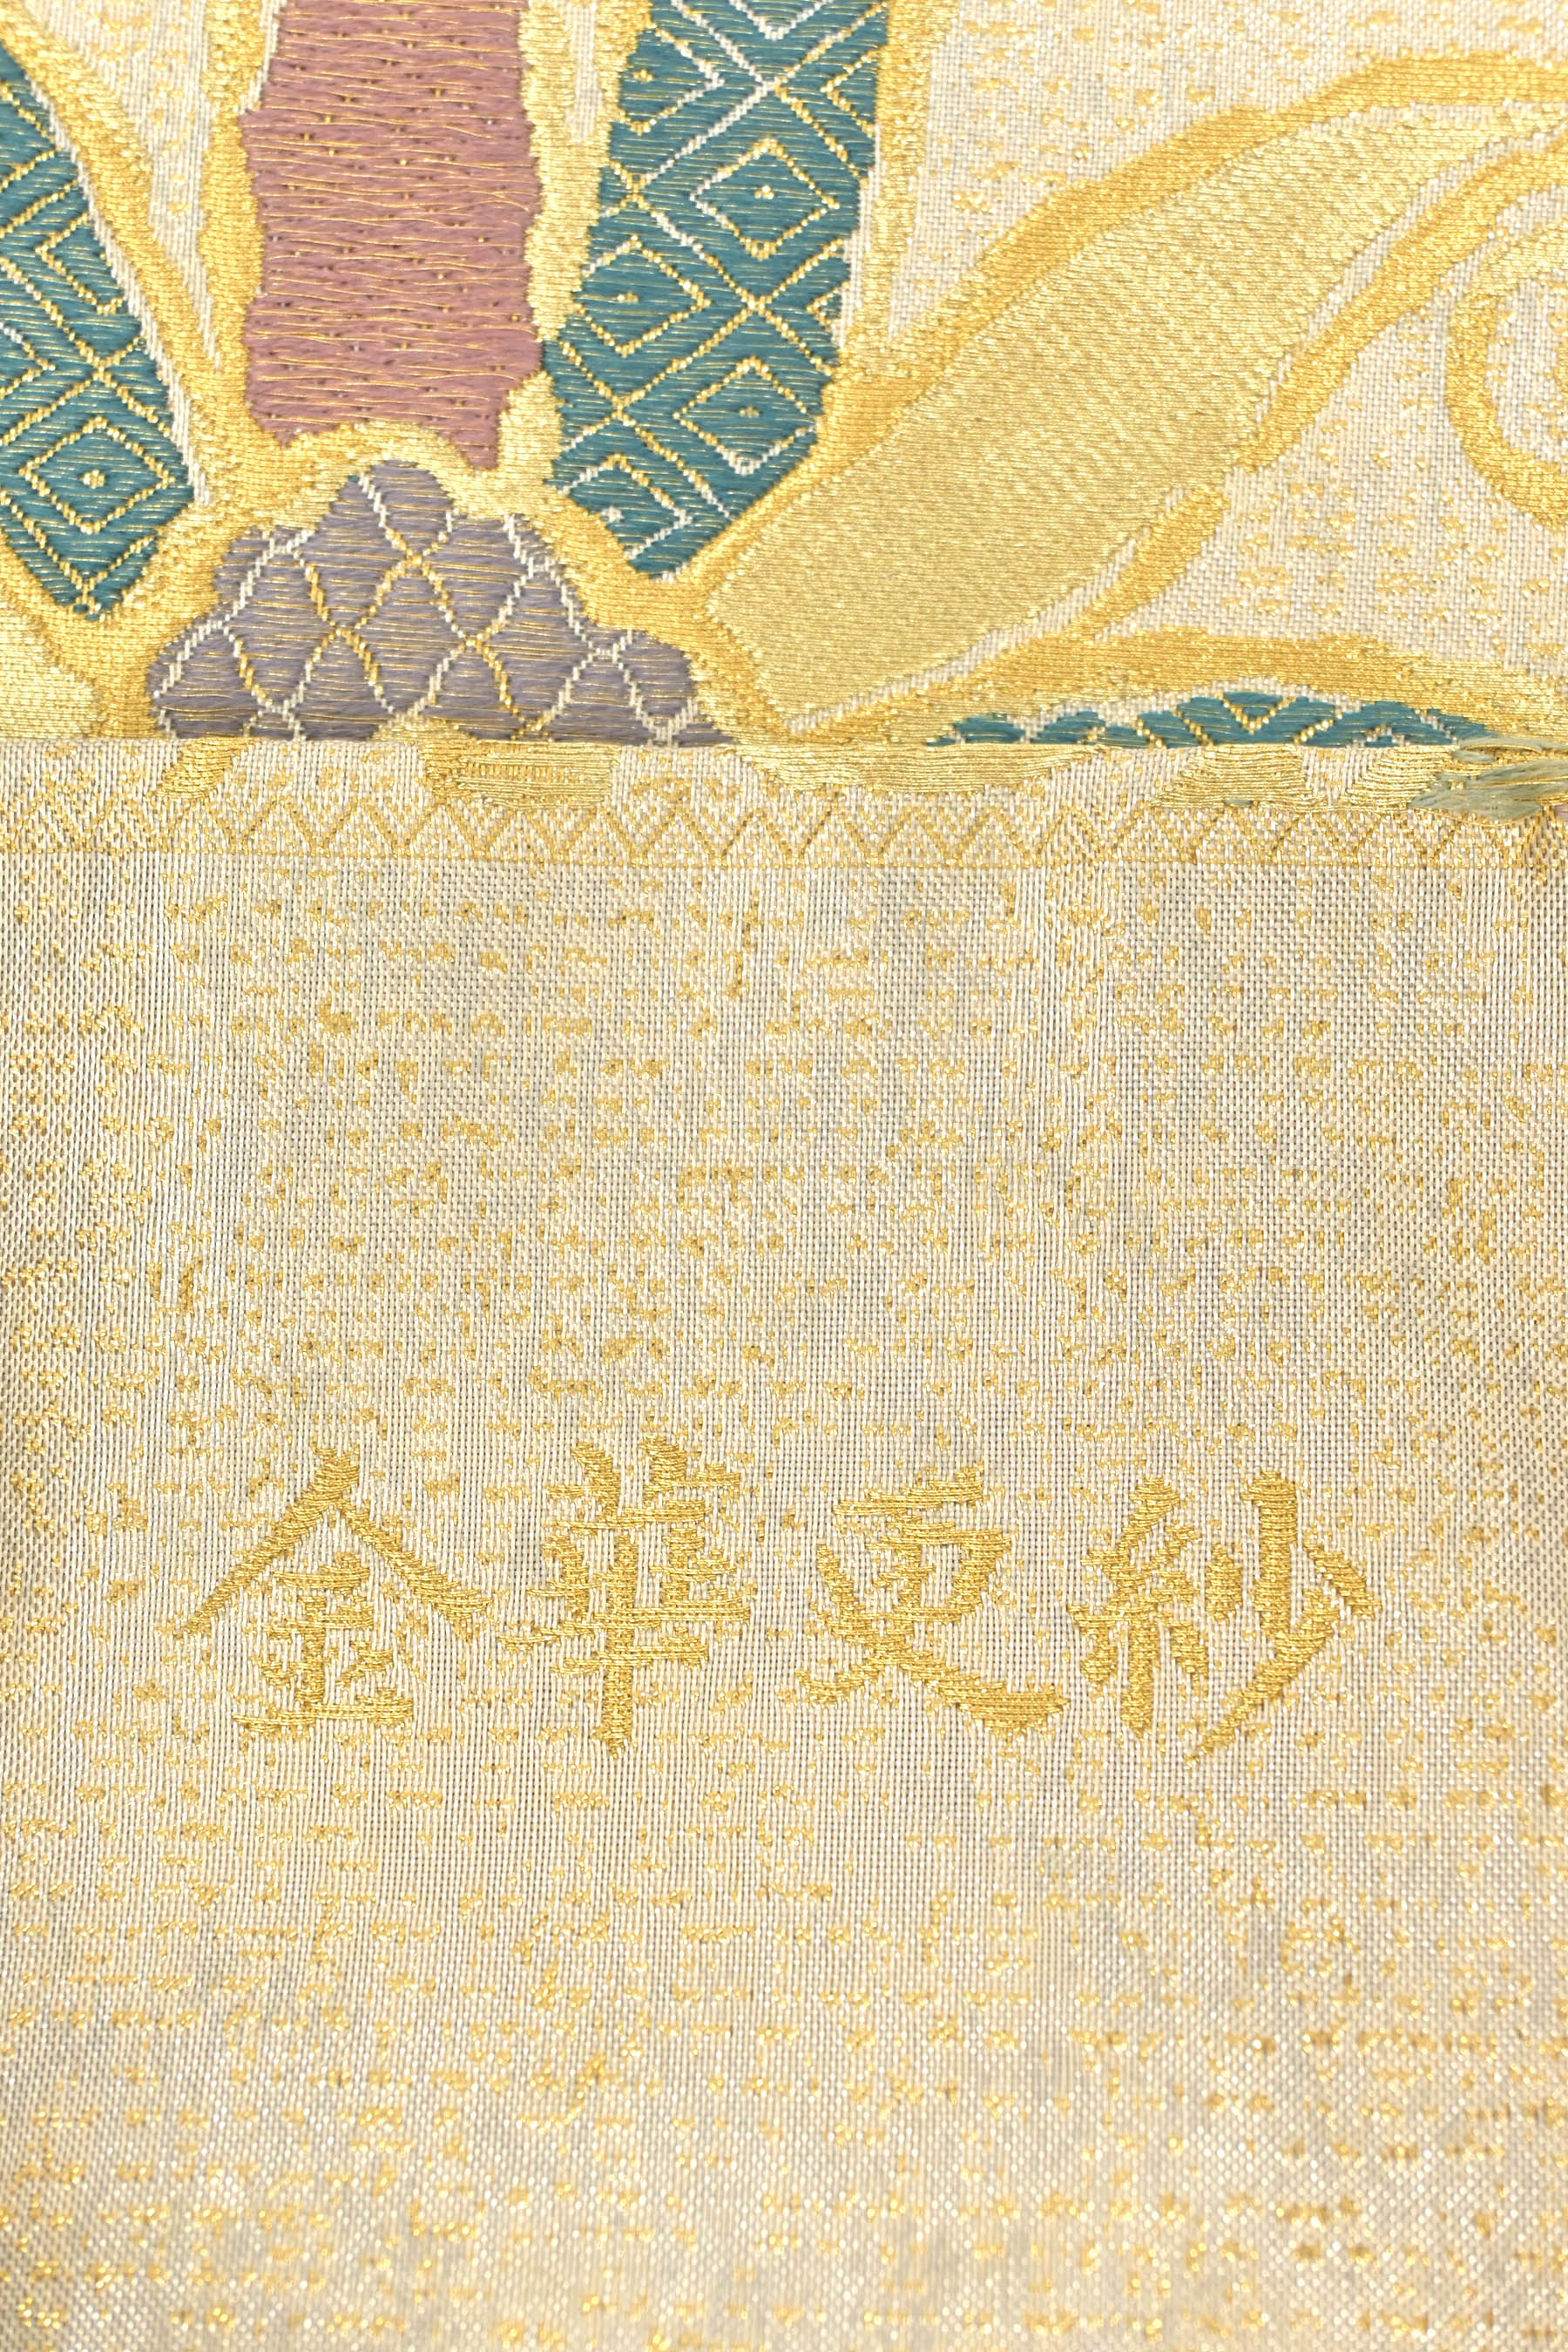 金華更紗